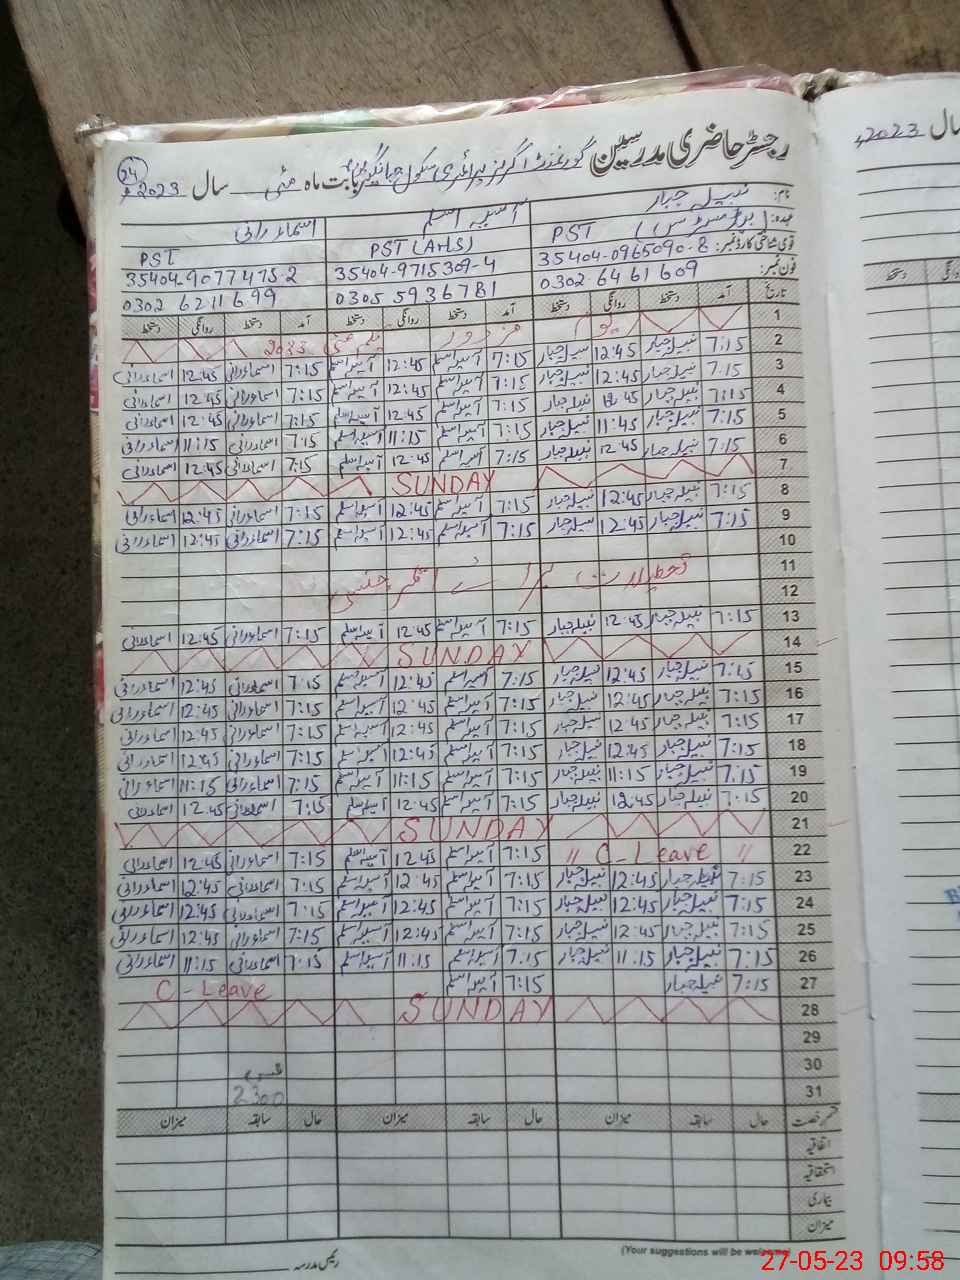 رجسٹر حاضری مدرسین گورنمنٹ گرلز پرائمری سکول بابت ماہ مئی سال 2023ء
24
سال 2023ء
نام: نبیلہ جبار آسیہ اسلم اسماء درانی
عہدہ: PST PST (AHS) PST
قومی شناختی کارڈ نمبر: 35404-0965090-8 35404-9715309-4 35404-9077475-2
فون نمبر: 0302 6461609 0305 5936781 0302 6211699
تاریخ آمد دستخط روانگی دستخط آمد دستخط روانگی دستخط آمد دستخط روانگی دستخط
1 یوم مزدور یکم مئی 2023
2 7:15 نبیلہ جبار 12:45 نبیلہ جبار 7:15 آسیہ اسلم 12:45 آسیہ اسلم 7:15 اسماء درانی 12:45 اسماء درانی
3 7:15 نبیلہ جبار 12:45 نبیلہ جبار 7:15 آسیہ اسلم 12:45 آسیہ اسلم 7:15 اسماء درانی 12:45 اسماء درانی
4 7:15 نبیلہ جبار 12:45 نبیلہ جبار 7:15 آسیہ اسلم 12:45 آسیہ اسلم 7:15 اسماء درانی 12:45 اسماء درانی
5 7:15 نبیلہ جبار 11:45 نبیلہ جبار 7:15 آسیہ اسلم 11:15 آسیہ اسلم 7:15 اسماء درانی 11:15 اسماء درانی
6 7:15 نبیلہ جبار 12:45 نبیلہ جبار 7:15 آسیہ اسلم 12:45 آسیہ اسلم 7:15 اسماء درانی 12:45 اسماء درانی
7 SUNDAY
8 7:15 نبیلہ جبار 12:45 نبیلہ جبار 7:15 آسیہ اسلم 12:45 آسیہ اسلم 7:15 اسماء درانی 12:45 اسماء درانی
9 7:15 نبیلہ جبار 12:45 نبیلہ جبار 7:15 آسیہ اسلم 12:45 آسیہ اسلم 7:15 اسماء درانی 12:45 اسماء درانی
10
11 تعطیلات برائے ایمرجنسی
12
13 7:15 نبیلہ جبار 12:45 نبیلہ جبار 7:15 آسیہ اسلم 12:45 آسیہ اسلم 7:15 اسماء درانی 12:45 اسماء درانی
14 SUNDAY
15 7:15 نبیلہ جبار 12:45 نبیلہ جبار 7:15 آسیہ اسلم 12:45 آسیہ اسلم 7:15 اسماء درانی 12:45 اسماء درانی
16 7:15 نبیلہ جبار 12:45 نبیلہ جبار 7:15 آسیہ اسلم 12:45 آسیہ اسلم 7:15 اسماء درانی 12:45 اسماء درانی
17 7:15 نبیلہ جبار 12:45 نبیلہ جبار 7:15 آسیہ اسلم 12:45 آسیہ اسلم 7:15 اسماء درانی 12:45 اسماء درانی
18 7:15 نبیلہ جبار 12:45 نبیلہ جبار 7:15 آسیہ اسلم 12:45 آسیہ اسلم 7:15 اسماء درانی 12:45 اسماء درانی
19 7:15 نبیلہ جبار 11:15 نبیلہ جبار 7:15 آسیہ اسلم 11:15 آسیہ اسلم 7:15 اسماء درانی 11:15 اسماء درانی
20 7:15 نبیلہ جبار 12:45 نبیلہ جبار 7:15 آسیہ اسلم 12:45 آسیہ اسلم 7:15 اسماء درانی 12:45 اسماء درانی
21 SUNDAY
22 " C-Leave " 7:15 آسیہ اسلم 12:45 آسیہ اسلم 7:15 اسماء درانی 12:45 اسماء درانی
23 7:15 نبیلہ جبار 12:45 نبیلہ جبار 7:15 آسیہ اسلم 12:45 آسیہ اسلم 7:15 اسماء درانی 12:45 اسماء درانی
24 7:15 نبیلہ جبار 12:45 نبیلہ جبار 7:15 آسیہ اسلم 12:45 آسیہ اسلم 7:15 اسماء درانی 12:45 اسماء درانی
25 7:15 نبیلہ جبار 12:45 نبیلہ جبار 7:15 آسیہ اسلم 12:45 آسیہ اسلم 7:15 اسماء درانی 12:45 اسماء درانی
26 7:15 نبیلہ جبار 11:15 نبیلہ جبار 7:15 آسیہ اسلم 11:15 آسیہ اسلم 7:15 اسماء درانی 11:15 اسماء درانی
27 7:15 نبیلہ جبار 7:15 آسیہ اسلم C-Leave
28 SUNDAY
29
30
31 2300
قسم رخصت حال سابقہ میزان حال سابقہ میزان حال سابقہ میزان
اتفاقیہ
استحقاقیہ
بیماری
میزان
(Your suggestions will be welcome)
رئیس مدرسہ
27-05-23 09:58